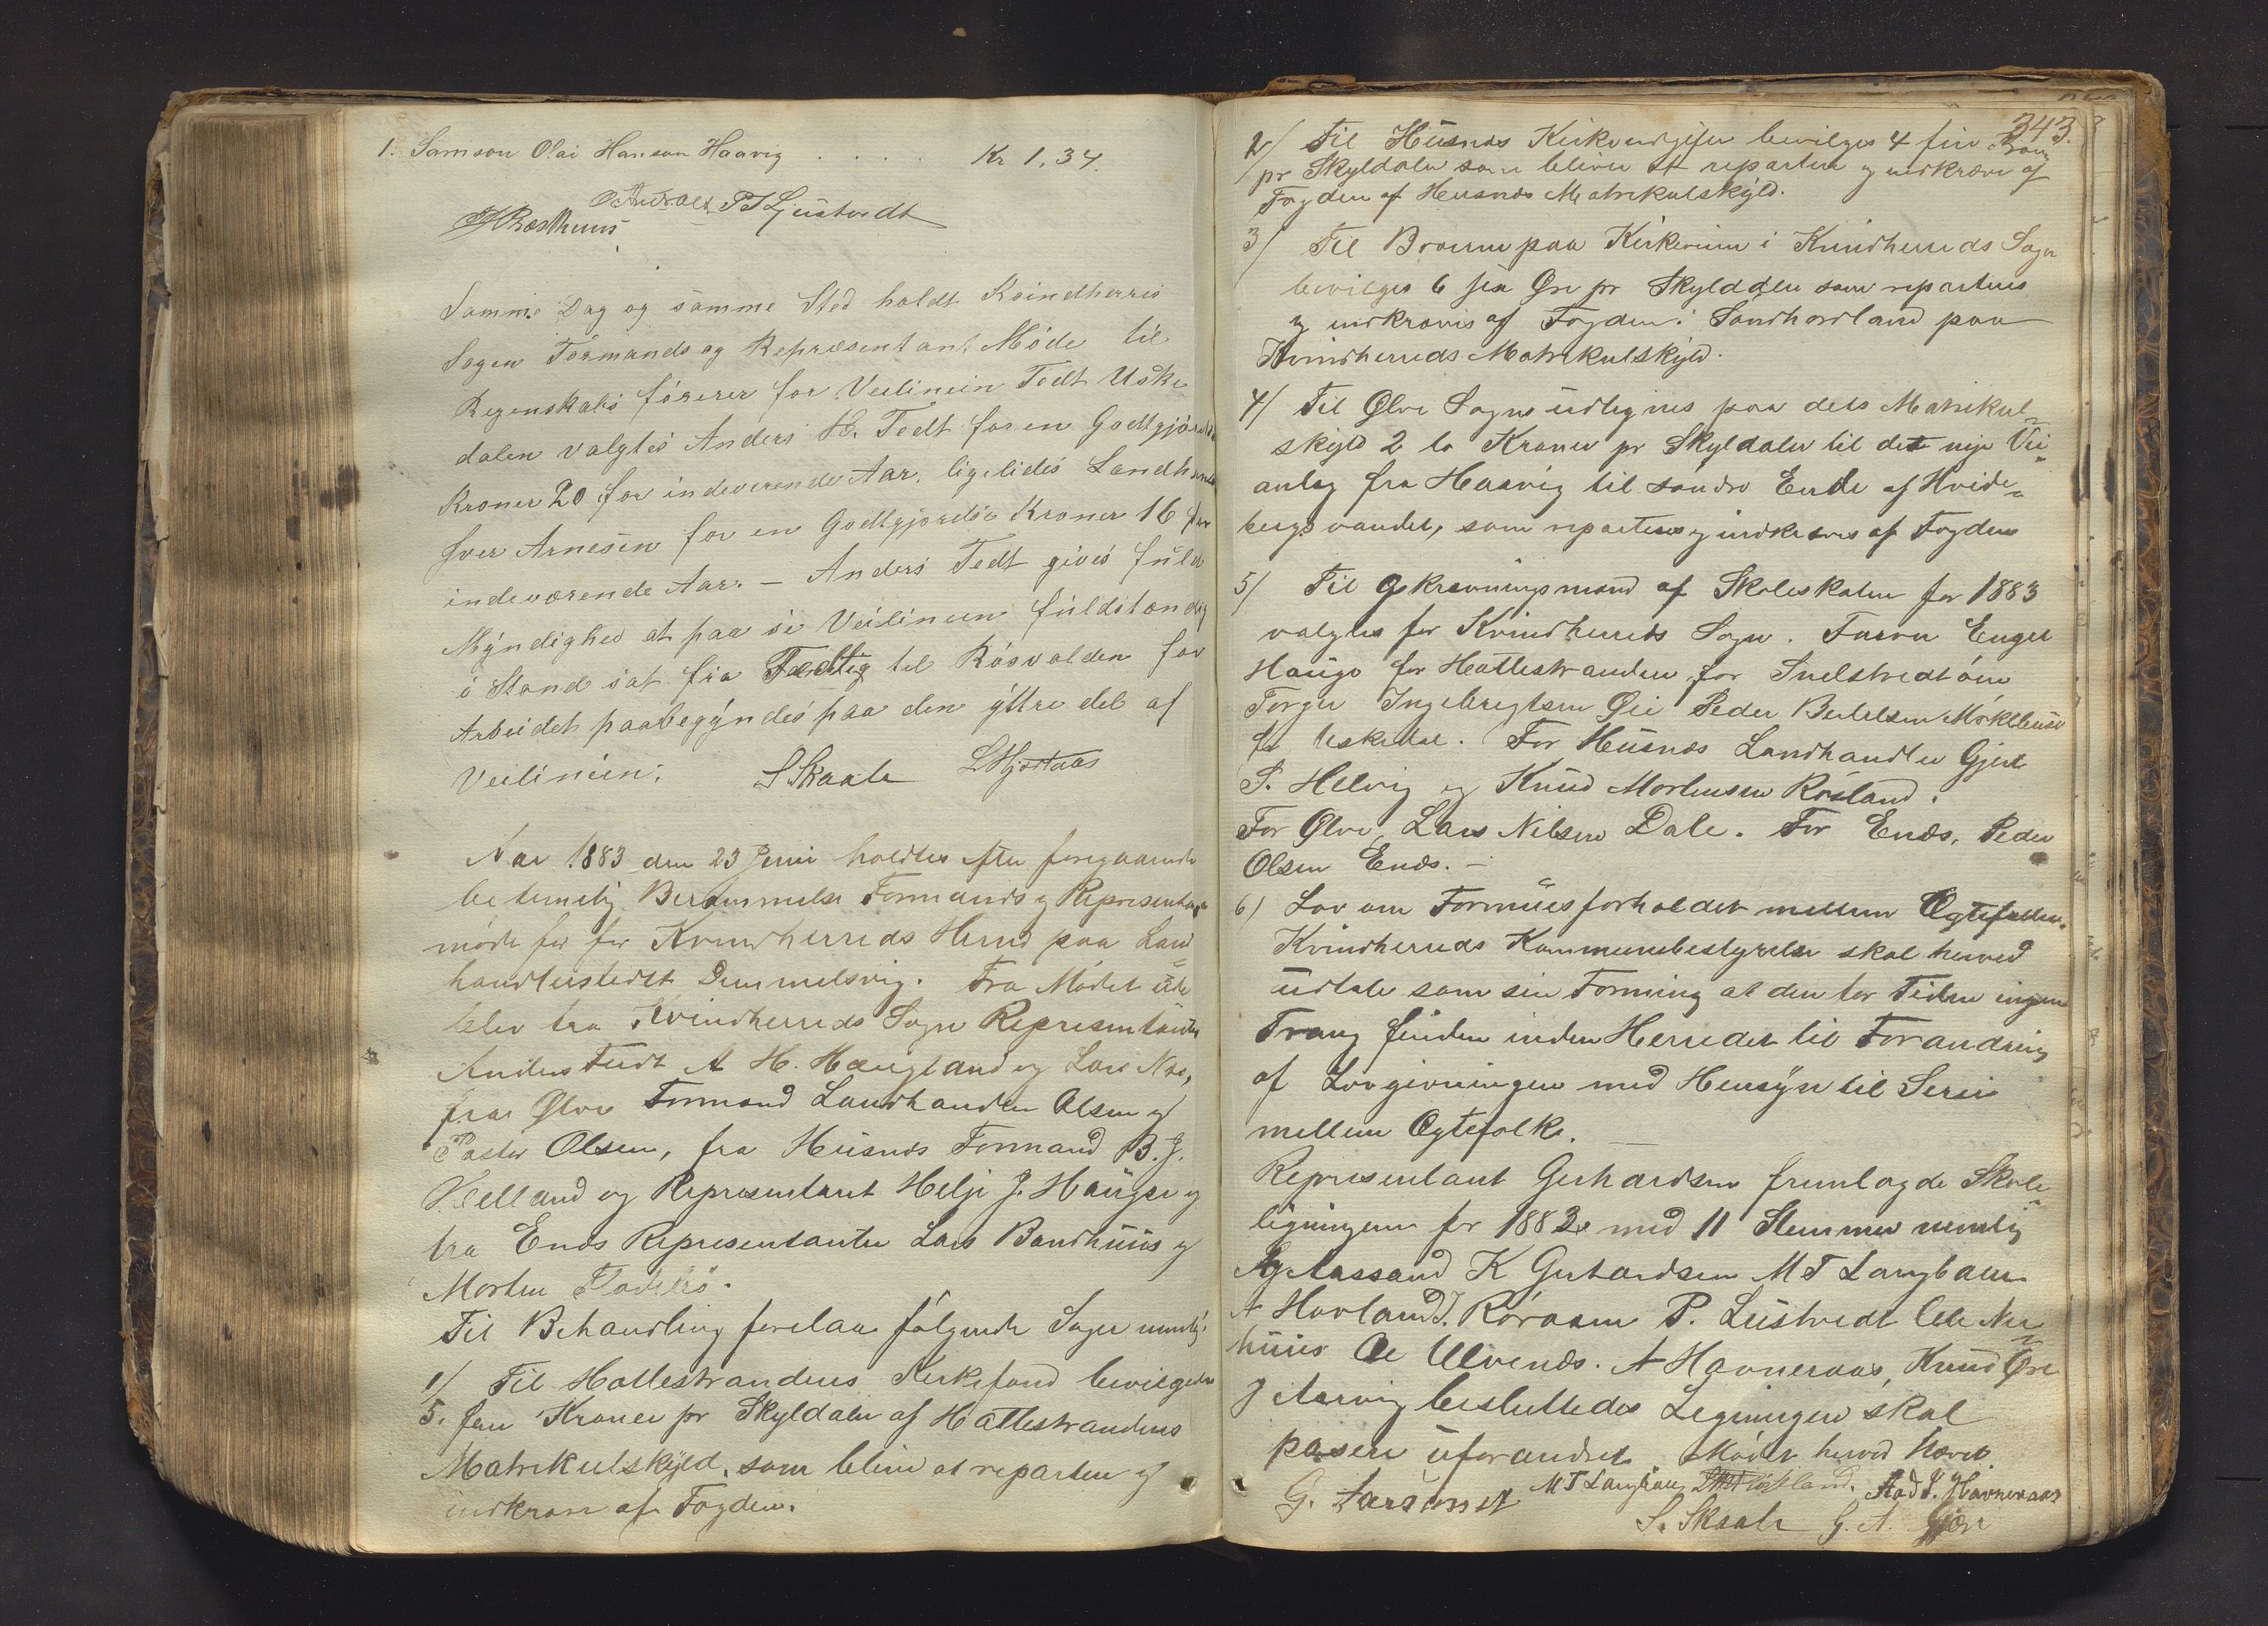 1. Samson Olai Hanson Haavig . . . . Kr 1,34.
Samme Dag og samme Sted holdt Kvindherres
Sogen Formands og Repræsentant Møde til
Regenskabs förerer for Veilinien Tedt Uske
dalen valgtes Anders H. Tedt for en Godtgjörelse
Kroner 20 for indeverende Aar. ligeledes Landh
Iver Arnesen for en Godtgjörelse Kroner 16 for
indeværende Aar. – Anders Tedt gives fuld
Myndighed at paa se Veilinien fuldstændig
i Stand sat fra til Rösvolden for
Arbeidet paabegyndes paa den yttre del af
Veilinien. S Skaale L Hjortaas
Aar 1883 den 23 Juni holdtes efter foregaaende
betimelig Berammelse Formands og Representant
möde for Kvindherreds Herred paa Land
handlerstedet Dimmelsvig. Fra Mödet ude
blev fra Kvindherreds Sogn Representanter
Anders Tedt A H. Haugland og Lars Næs,
fra Ølve Formand Landhandler Olsen og
Pastor Olsen, fra Huusnæs Formand B. J.
Helland og Representant Helje J. Hauge og
fra Enæs Representanter Lars Bondhuus og
Morten
Til Behandling forelaa fölgende Sager nemlig
1/ Til Hattestrandens Kirkefond bevilgedes
5. fem Kroner pr Skyldaler af Hattestrandens
Matrikulskyld, som bliver at repartere og
indkræve af Fogden.
343.
2/ Til Huusnæs Kirkeudgifter bevilges 4 fire Kroner
pr Skyldaler som bliver at repartere og indkræve af
Fogden af Huusnæs Matrikulskyld.
3/ Til Brouene paa Kirkeveien i Kvindherreds Sogn
bevilges 6 sex Øre pr Skylddler som reparteres
og indkræves af Fogden i Söndhordland paa
Kvindherreds Matrikulskyld.
4/ Til Ølve Sogns udlignes paa dets Matrikul-
skyld 2 to Kroner pr Skyldaler til det nye Vei-
anlæg fra Haavig til søndre Ende af Hvide-
bergsvandet, som reparteres og indkræves af Fogden
5/ Til Opkrævningsmænd af Skoleskatten for 1883
valgtes for Kvindherreds Sogn. Farver Engel
Hauge for Hattestranden, for Snelstvedtöen
Torger Ingebrigtsen Øie Peder Bertelsen Mökelbust
for Uskedal. For Huusnæs Landhandler Gjert
P. Helvig og Knud Mortensen Röiland.
For Ølve, Lars Nilsen Dale. For Enæs, Peder
Olsen Enæs. –
6/ Lov om Formuesforholdet mellem Ægtefæller.
Kvindherreds Kommunebestyrelse skal herved
udtale som sin Formening at den for Tiden ingen
Trang finder inden Herredet til Forandring
af Lovgivningen med Hensyn til Særeie
mellem Ægtefolk.
Representant Gerhardsen fremlagde Skole-
ligningen for 1882 med 11 Stemmer nemlig
Aassand K Gerhardsen M T Langballe
A Hovland J. Röraasen P. Liustvedt Ole Ner
huus Ole Ulvenæs. A Havneraas, Knud Øre
J Aarvig besluttedes Ligningen skal
pasere uforandret. Mödet herved hævet
M T Langballe Aad J. Havneraas
S. Skaale G. A. Gjær